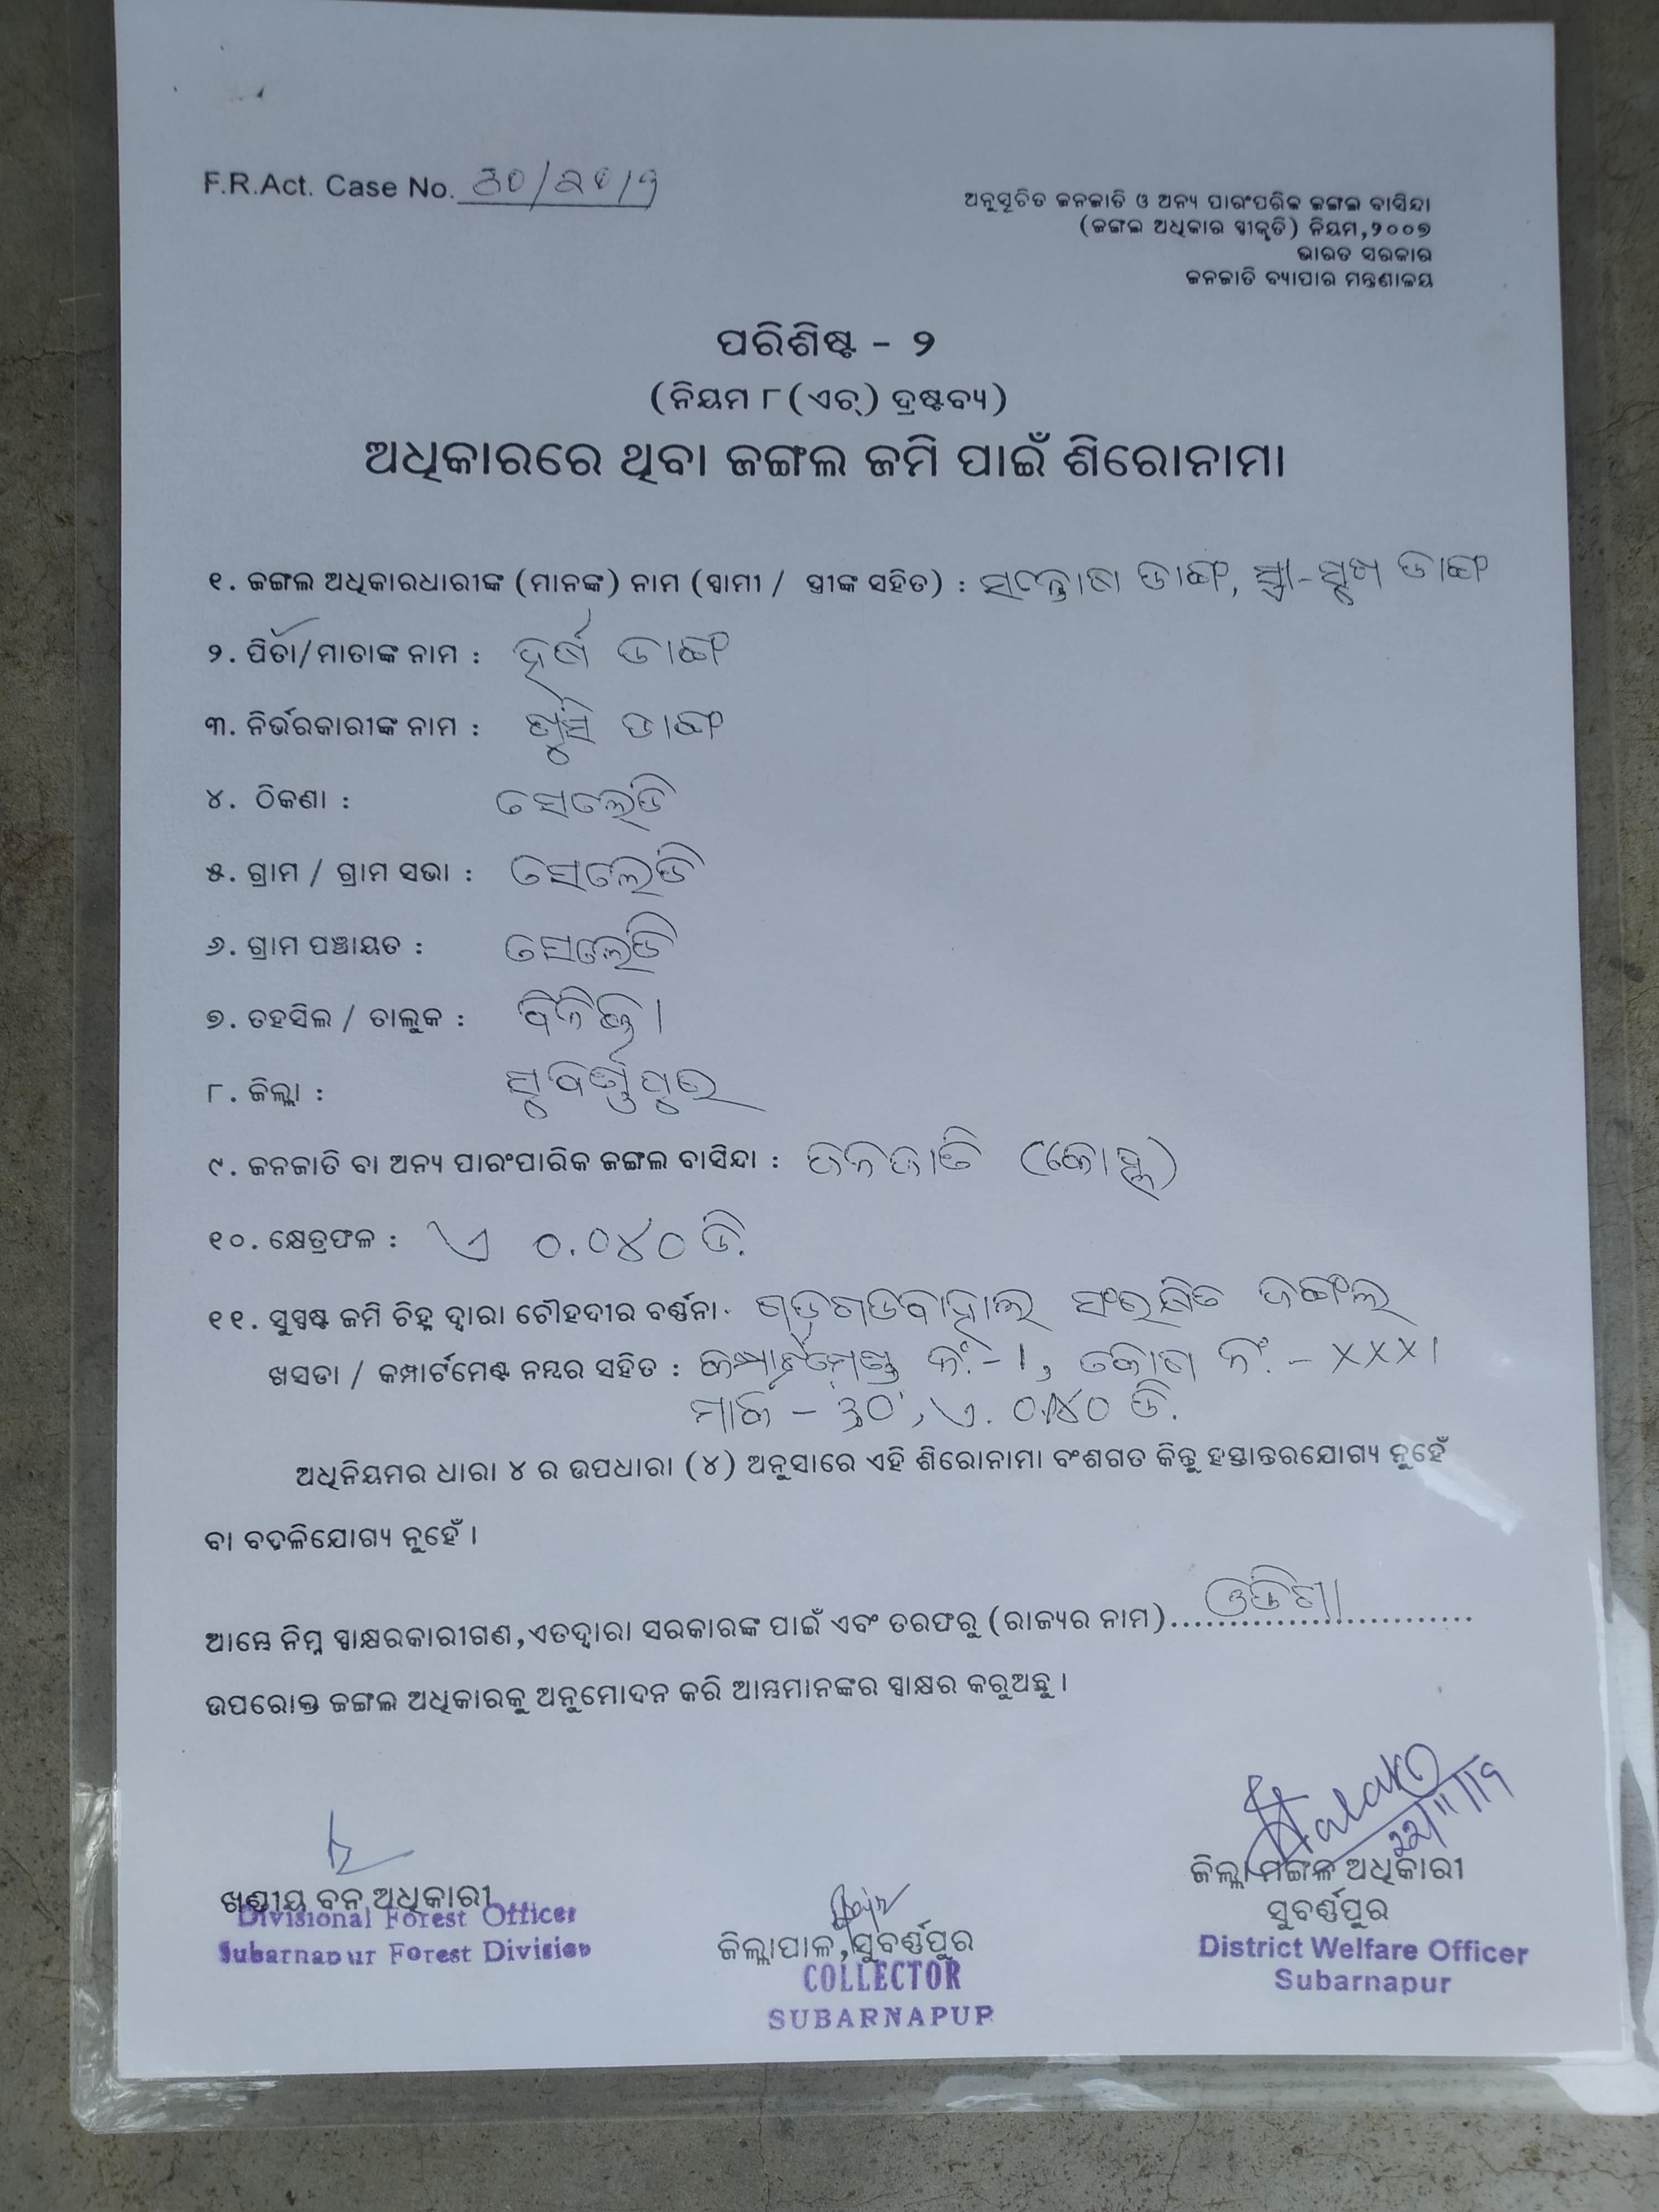 F.R.Act. Case No. 30/2017
ଅନୁସୂଚିତ ଜନଜାତି ଓ ଅନ୍ୟ ପାରଂପରିକ ଜଙ୍ଗଲ ବାସିନ୍ଦା
(ଜଙ୍ଗଲ ଅଧିକାର ସ୍ୱୀକୃତି) ନିୟମ,୨୦୦୭
ଭାରତ ସରକାର
ଜନଜାତି ବ୍ୟାପାର ମନ୍ତ୍ରଣାଳୟ
ପରିଶିଷ୍ଟ - ୨
(ନିୟମ ୮(ଏଚ୍) ଦ୍ରଷ୍ଟବ୍ୟ)
ଅଧିକାରରେ ଥିବା ଜଙ୍ଗଲ ଜମି ପାଇଁ ଶିରୋନାମା
୧. ଜଙ୍ଗଲ ଅଧିକାରଧାରୀଙ୍କ (ମାନଙ୍କ) ନାମ (ସ୍ୱାମୀ / ସ୍ତ୍ରୀଙ୍କ ସହିତ) :
୨. ପିତା/ମାତାଙ୍କ ନାମ :
୩. ନିର୍ଭରକାରୀଙ୍କ ନାମ :
୪. ଠିକଣା : ସେଲେଡି
୫. ଗ୍ରାମ / ଗ୍ରାମ ସଭା : ସେଲେଡି
୬. ଗ୍ରାମ ପଞ୍ଚାୟତ : ସେଲେଡି
୭. ତହସିଲ / ତାଲୁକ : ବିନିକା
୮. ଜିଲ୍ଲା : ସୁବର୍ଣ୍ଣପୁର
୯. ଜନଜାତି ବା ଅନ୍ୟ ପାରଂପାରିକ ଜଙ୍ଗଲ ବାସିନ୍ଦା : ଜନଜାତି
୧୦. କ୍ଷେତ୍ରଫଳ : ଏ ୦.୦୪୦ ଡି.
୧୧. ସୁସ୍ପଷ୍ଟ ଜମି ଚିହ୍ନ ଦ୍ୱାରା ଚୌହଦୀର ବର୍ଣ୍ଣନା- ସଂରକ୍ଷିତ ଜଙ୍ଗଲ
ଖସଡା / କମ୍ପାର୍ଟମେଣ୍ଟ ନମ୍ବର ସହିତ : କମ୍ପାର୍ଟମେଣ୍ଟ ନଂ.-1, ନଂ. - XXX।
- 30, ଏ. ୦.୦୪୦ ଡି.
ଅଧିନିୟମର ଧାରା ୪ ର ଉପଧାରା (୪) ଅନୁସାରେ ଏହି ଶିରୋନାମା ବଂଶଗତ କିନ୍ତୁ ହସ୍ତାନ୍ତରଯୋଗ୍ୟ ନୁହେଁ
ବା ବଦଳିଯୋଗ୍ୟ ନୁହେଁ ।
ଆମ୍ଭେ ନିମ୍ନ ସ୍ୱାକ୍ଷରକାରୀଗଣ,ଏତଦ୍ୱାରା ସରକାରଙ୍କ ପାଇଁ ଏବଂ ତରଫରୁ (ରାଜ୍ୟର ନାମ) ଓଡିଶା
ଉପରୋକ୍ତ ଜଙ୍ଗଲ ଅଧିକାରକୁ ଅନୁମୋଦନ କରି ଆମ୍ଭମାନଙ୍କର ସ୍ୱାକ୍ଷର କରୁଅଛୁ ।
ଖଣ୍ଡୀୟ ବନ ଅଧିକାରୀ
Divisional Forest Officer
Subarnapur Forest Division
ଜିଲ୍ଲାପାଳ,ସୁବର୍ଣ୍ଣପୁର
COLLECTOR
SUBARNAPUR
ଜିଲ୍ଲା ମଙ୍ଗଳ ଅଧିକାରୀ
ସୁବର୍ଣ୍ଣପୁର
District Welfare Officer
Subarnapur